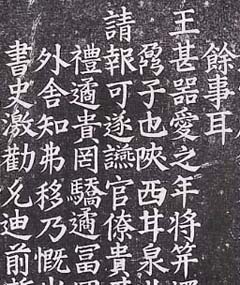 餘事耳
王甚器愛之年将笄擇
子也陝西甘泉
請報可遂讌官僚貴戚
禮遹貴罔驕遹冨罔
外舍知弗移乃慨
書史激勸允迪前哲